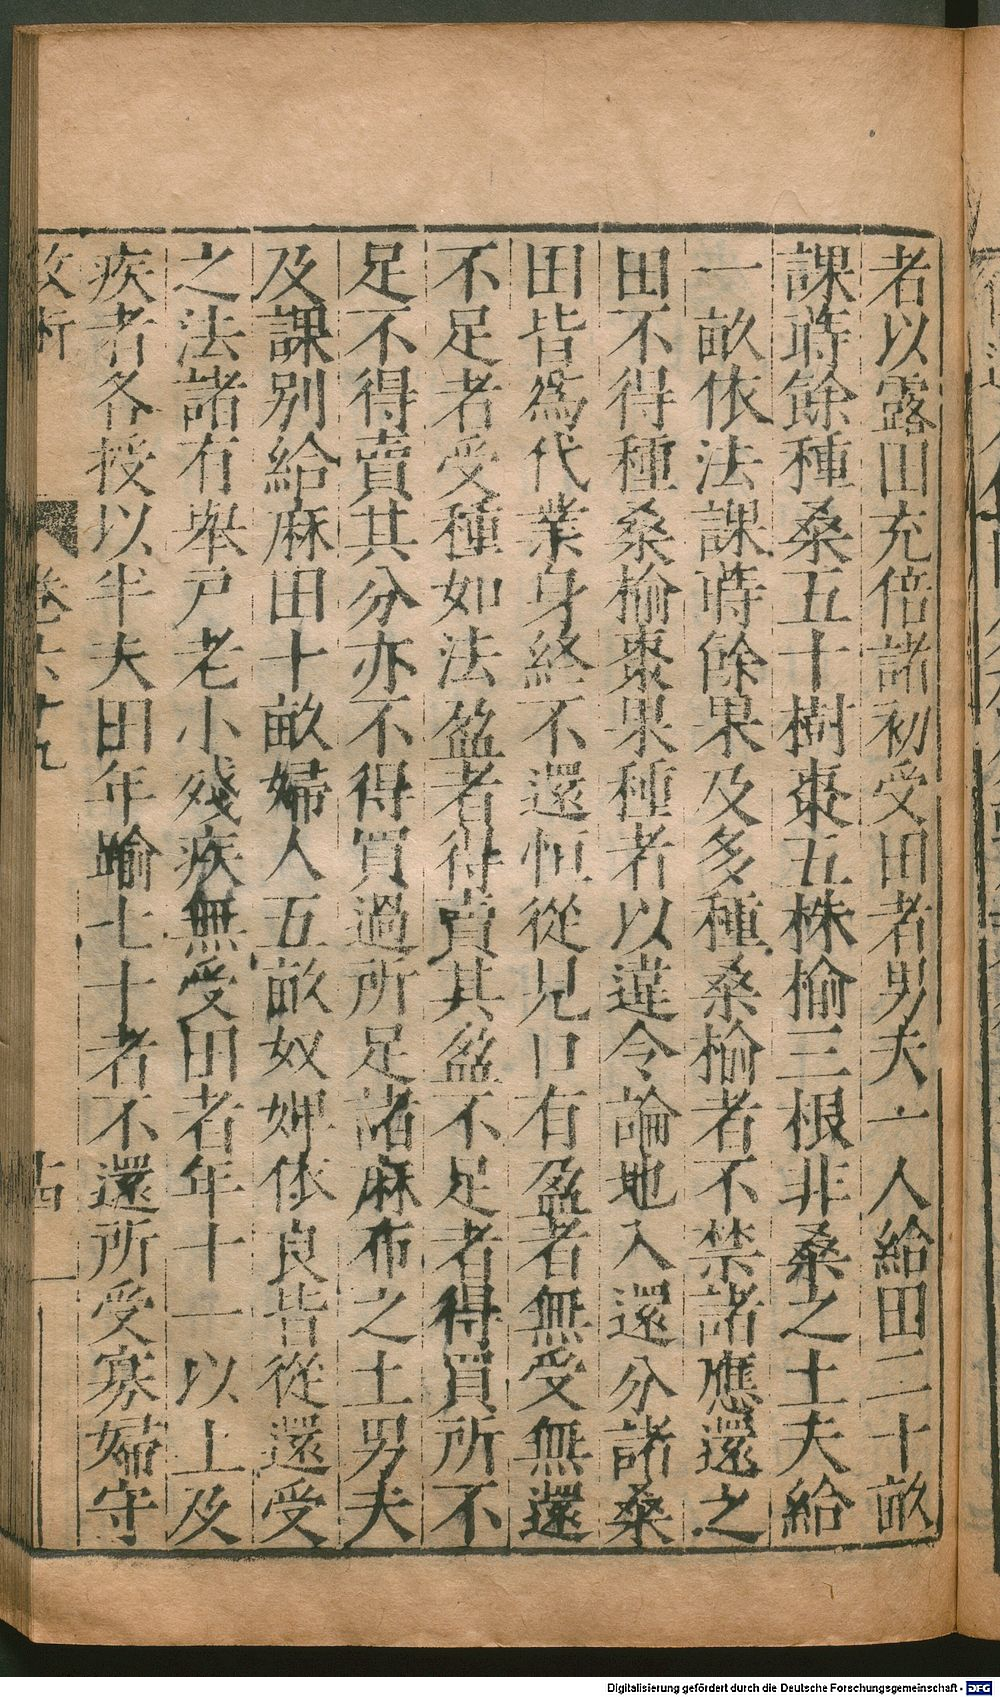 者以露田充倍諸初受田者男夫一人給田二十畝
課蒔餘種桑五十樹棗五株榆三根非桑之土夫給
一畝依法課蒔餘果及多種桑榆者不禁諸應還之
田不得種桑榆棗果種者以違令論地入還分諸桑
田皆為代業身終不還恒從見口有盈者無受無還
不足者受種如法盈者得賣其盈不足者得買所不
足不得賣其分亦不得買過所足諸麻布之土男夫
及課別給麻田十畝婦人五畝奴婢依良皆從還受
之法諸有舉戶老小殘疾無受田者年十一以上及
疾者各授以半夫田年踰七十者不還所受寡婦守
卷六十九
十四
Digitalisierung gefördert durch die Deutsche Forschungsgemeinschaft - DFG